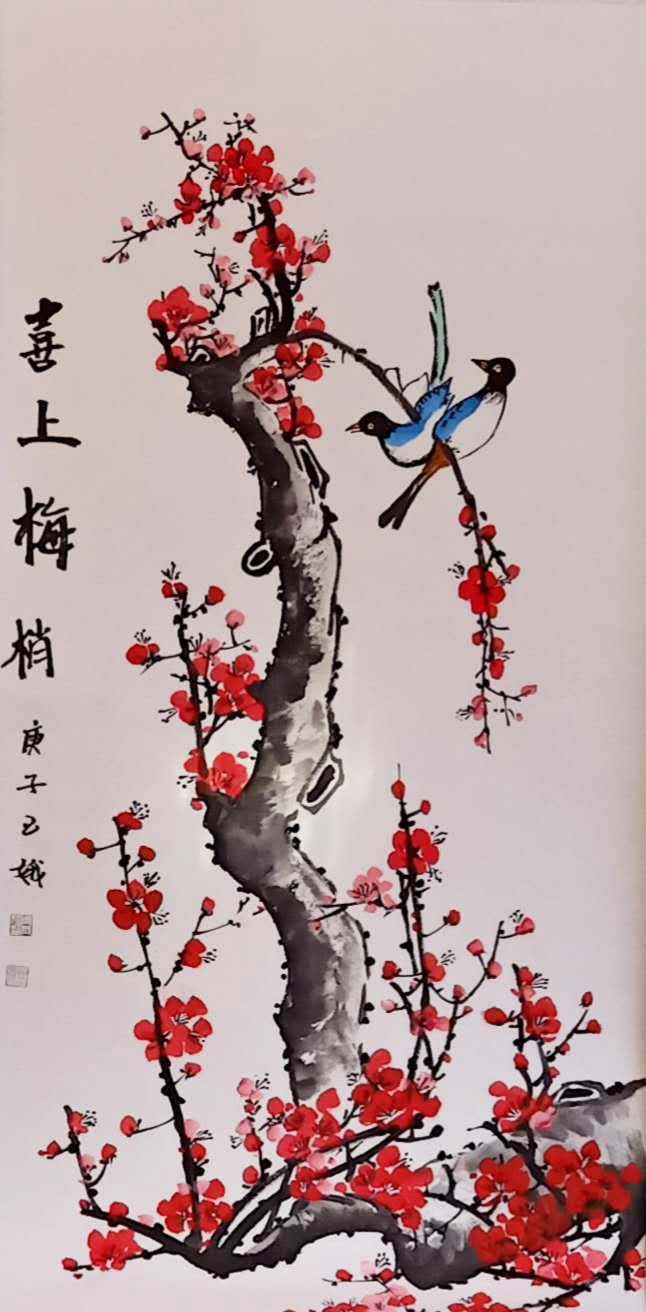 喜上梅梢
庚子玉娥